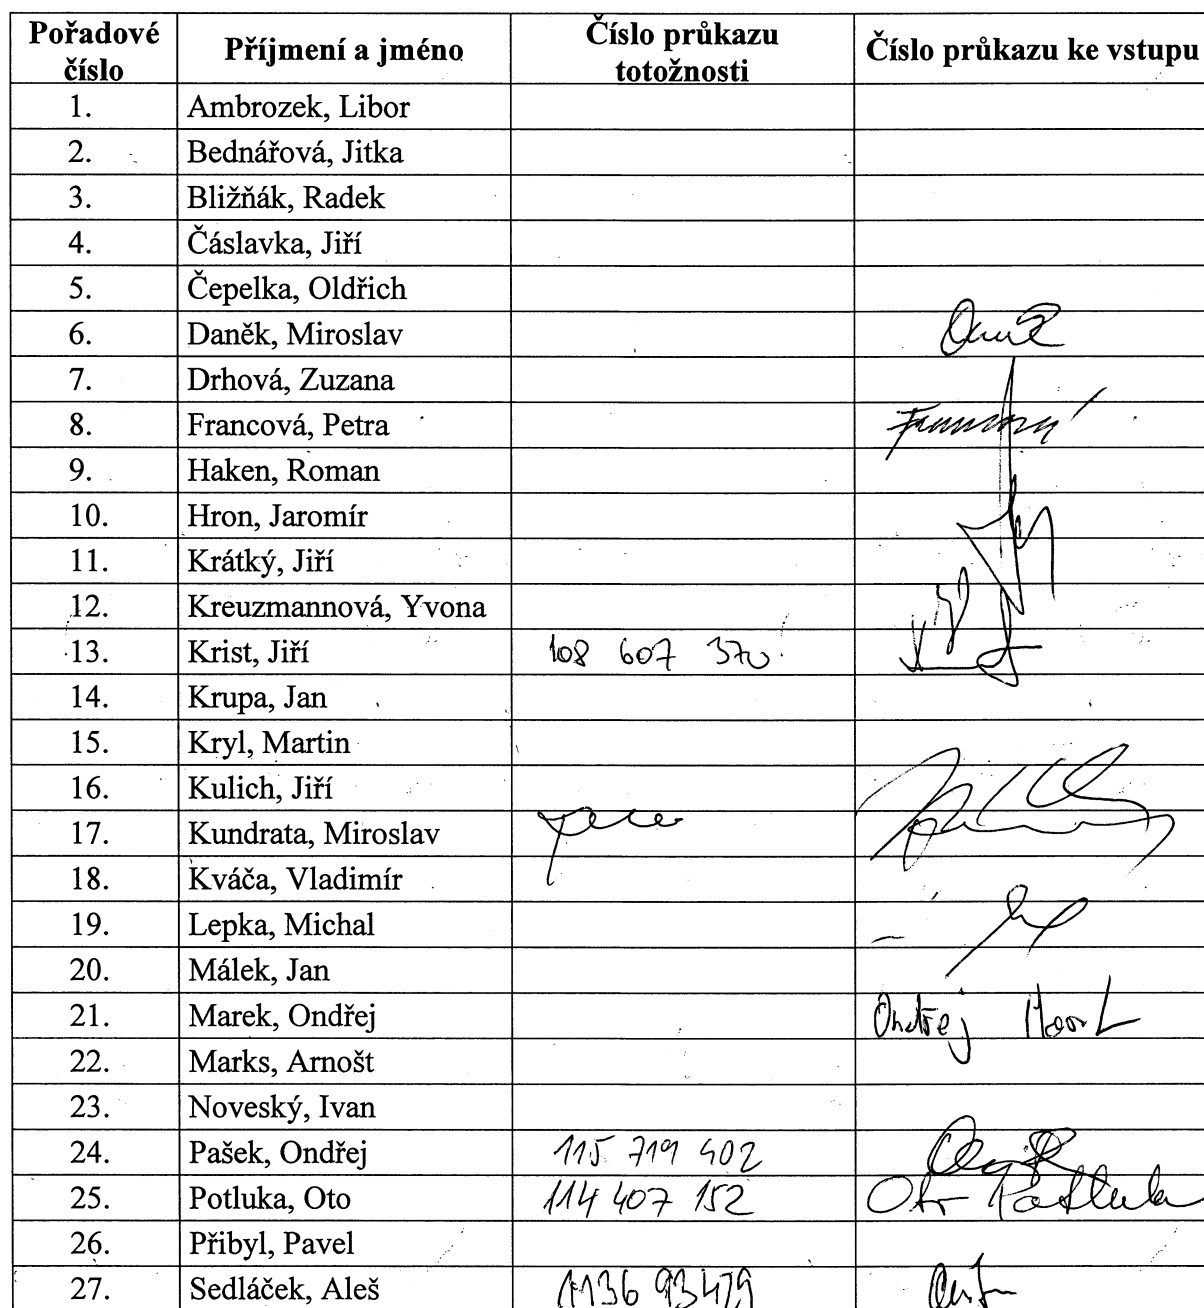 Pořadové číslo Příjmení a jméno Číslo průkazu totožnosti Číslo průkazu ke vstupu
1. Ambrozek, Libor
2. Bednářová, Jitka
3. Bližňák, Radek
4. Čáslavka, Jiří
5. Čepelka, Oldřich
6. Daněk, Miroslav
7. Drhová, Zuzana
8. Francová, Petra Francová
9. Haken, Roman
10. Hron, Jaromír
11. Krátký, Jiří
12. Kreuzmannová, Yvona
13. Krist, Jiří 108 607 370
14. Krupa, Jan
15. Kryl, Martin
16. Kulich, Jiří
17. Kundrata, Miroslav
18. Kváča, Vladimír
19. Lepka, Michal
20. Málek, Jan
21. Marek, Ondřej Ondřej Marek
22. Marks, Arnošt
23. Noveský, Ivan
24. Pašek, Ondřej 115 719 402
25. Potluka, Oto 114 407 152 Oto Potluka
26. Přibyl, Pavel
27. Sedláček, Aleš 113693479